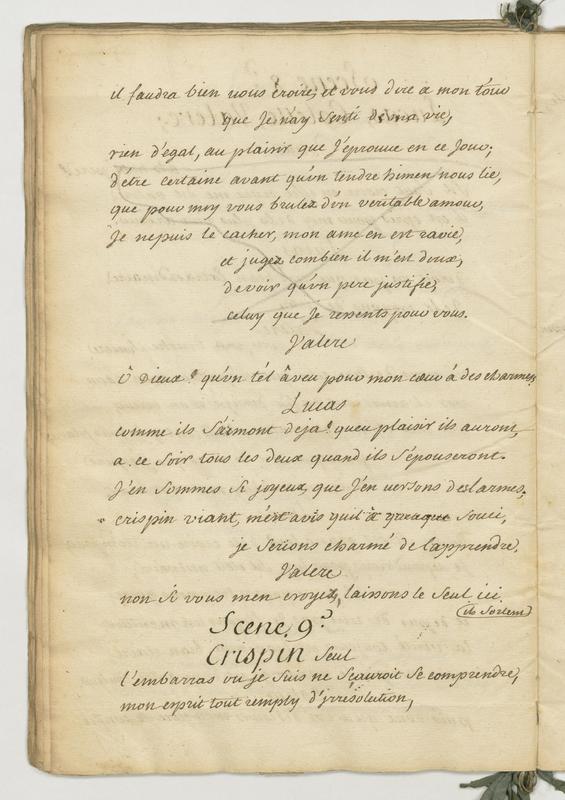 il faudra bien vous croire; et vous dire a mon tour
que Je n'ay senti de ma vie,
rien d'egal, au plaisir que J'éprouve en ce Jour;
d'être certaine avant qu'un tendre himen nous lie,
que pour moy vous brulez d'un veritable amour,
Je ne puis le cacher, mon ame en est ravie,
et jugez combien il m'est doux,
de voir qu'un pere justifie,
celuy que Je ressents pour vous.
Valere
ô Dieux! qu'un tél âveu pour mon cœur á des charmes
Lucas
comme ils s'aimont deja! queu plaisir ils auront,
a ce Soir tous les deux quand ils s'épouseront.
J'en Sommes si joyeux, que J'en versons des larmes,
crispin viant, m'ést avis qu'il a queuque Souci,
je Serions charmé de l'apprendre.
Valere
non Si vous m'en croyez, laissons le Seul ici
ils Sortent
Scene 9e
Crispin Seul
l'embarras ou je Suis ne Sçauroit Se comprendre,
mon esprit tout remply d'jrrésolution,